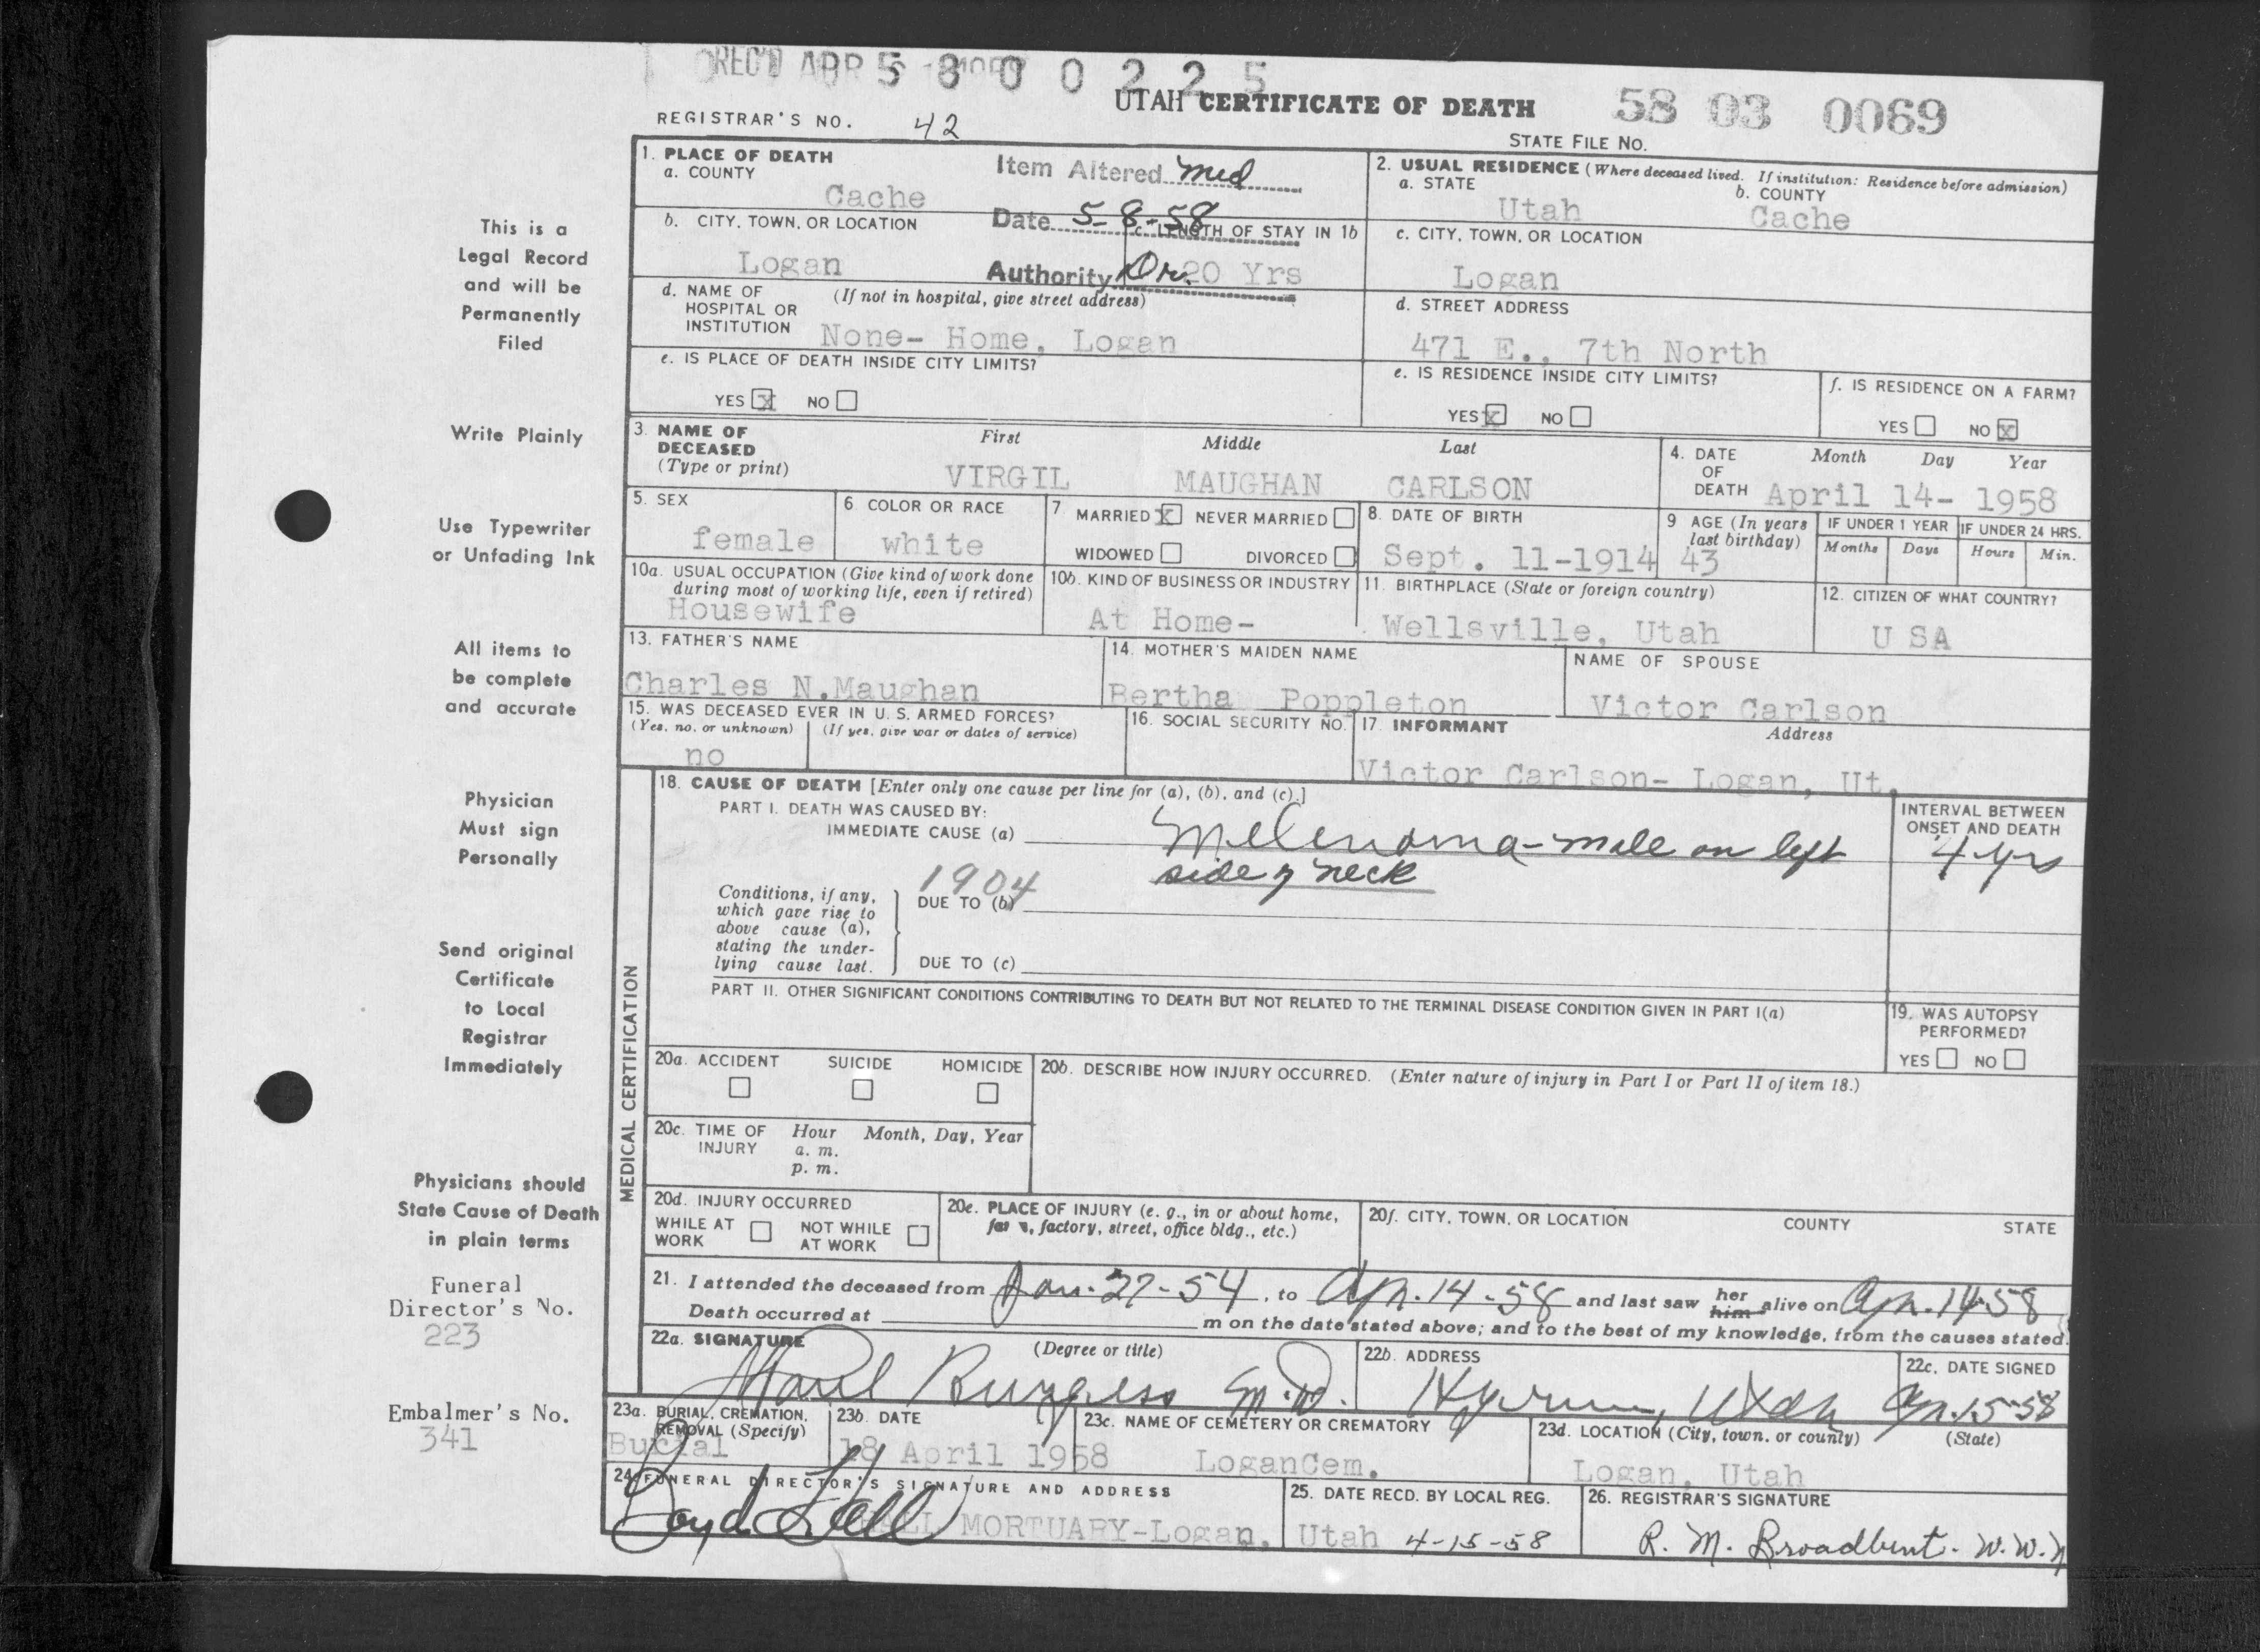 REC'D APR 5 8 0 0 2 2 5
UTAH CERTIFICATE OF DEATH
58 03 0069
REGISTRAR'S NO. 42
STATE FILE NO.
1. PLACE OF DEATH
a. COUNTY
Cache
Item Altered med
2. USUAL RESIDENCE (Where deceased lived. If institution: Residence before admission)
a. STATE
Utah
b. COUNTY
Cache
b. CITY, TOWN, OR LOCATION
Logan
Date 5-8-58
c. LENGTH OF STAY IN 1b
20 Yrs
Authority Dr.
c. CITY, TOWN, OR LOCATION
Logan
d. NAME OF HOSPITAL OR INSTITUTION
(If not in hospital, give street address)
None- Home, Logan
d. STREET ADDRESS
471 E., 7th North
e. IS PLACE OF DEATH INSIDE CITY LIMITS?
YES X NO
e. IS RESIDENCE INSIDE CITY LIMITS?
YES X NO
f. IS RESIDENCE ON A FARM?
YES NO X
3. NAME OF DECEASED
(Type or print)
First Middle Last
VIRGIL MAUGHAN CARLSON
4. DATE OF DEATH
Month Day Year
April 14- 1958
5. SEX
female
6. COLOR OR RACE
white
7. MARRIED X NEVER MARRIED
WIDOWED DIVORCED
8. DATE OF BIRTH
Sept. 11-1914
9. AGE (In years last birthday)
43
IF UNDER 1 YEAR
Months Days
IF UNDER 24 HRS.
Hours Min.
10a. USUAL OCCUPATION (Give kind of work done
during most of working life, even if retired)
Housewife
10b. KIND OF BUSINESS OR INDUSTRY
At Home-
11. BIRTHPLACE (State or foreign country)
Wellsville, Utah
12. CITIZEN OF WHAT COUNTRY?
U SA
13. FATHER'S NAME
Charles N.Maughan
14. MOTHER'S MAIDEN NAME
Bertha Poppleton
NAME OF SPOUSE
Victor Carlson
15. WAS DECEASED EVER IN U. S. ARMED FORCES?
(Yes, no, or unknown) (If yes, give war or dates of service)
no
16. SOCIAL SECURITY NO.
17. INFORMANT Address
Victor Carlson- Logan, Ut.
MEDICAL CERTIFICATION
18. CAUSE OF DEATH [Enter only one cause per line for (a), (b), and (c).]
PART I. DEATH WAS CAUSED BY:
IMMEDIATE CAUSE (a) Melenoma - mole on left
side of neck
INTERVAL BETWEEN
ONSET AND DEATH
4 yrs
1904
Conditions, if any,
which gave rise to
above cause (a),
stating the under-
lying cause last.
DUE TO (b)
DUE TO (c)
PART II. OTHER SIGNIFICANT CONDITIONS CONTRIBUTING TO DEATH BUT NOT RELATED TO THE TERMINAL DISEASE CONDITION GIVEN IN PART I(a)
19. WAS AUTOPSY
PERFORMED?
YES NO
20a. ACCIDENT SUICIDE HOMICIDE
20b. DESCRIBE HOW INJURY OCCURRED. (Enter nature of injury in Part I or Part II of item 18.)
20c. TIME OF INJURY
Hour Month, Day, Year
a. m.
p. m.
20d. INJURY OCCURRED
WHILE AT WORK NOT WHILE AT WORK
20e. PLACE OF INJURY (e. g., in or about home,
factory, street, office bldg., etc.)
20f. CITY, TOWN, OR LOCATION COUNTY STATE
21. I attended the deceased from Jan. 27-54, to Apr. 14-58 and last saw her him alive on Apr. 14-58
Death occurred at m on the date stated above; and to the best of my knowledge, from the causes stated.
22a. SIGNATURE (Degree or title)
Burgess M.D.
22b. ADDRESS
Hyrum, Utah
22c. DATE SIGNED
Apr. 15-58
23a. BURIAL, CREMATION,
REMOVAL (Specify)
Burial
23b. DATE
18 April 1958
23c. NAME OF CEMETERY OR CREMATORY
LoganCem.
23d. LOCATION (City, town, or county) (State)
Logan, Utah
24. FUNERAL DIRECTOR'S SIGNATURE AND ADDRESS
Boyd Hall
HALL MORTUARY-Logan, Utah
25. DATE RECD. BY LOCAL REG.
4-15-58
26. REGISTRAR'S SIGNATURE
R. M. Broadbent.
This is a
Legal Record
and will be
Permanently
Filed
Write Plainly
Use Typewriter
or Unfading Ink
All items to
be complete
and accurate
Physician
Must sign
Personally
Send original
Certificate
to Local
Registrar
Immediately
Physicians should
State Cause of Death
in plain terms
Funeral
Director's No.
223
Embalmer's No.
341